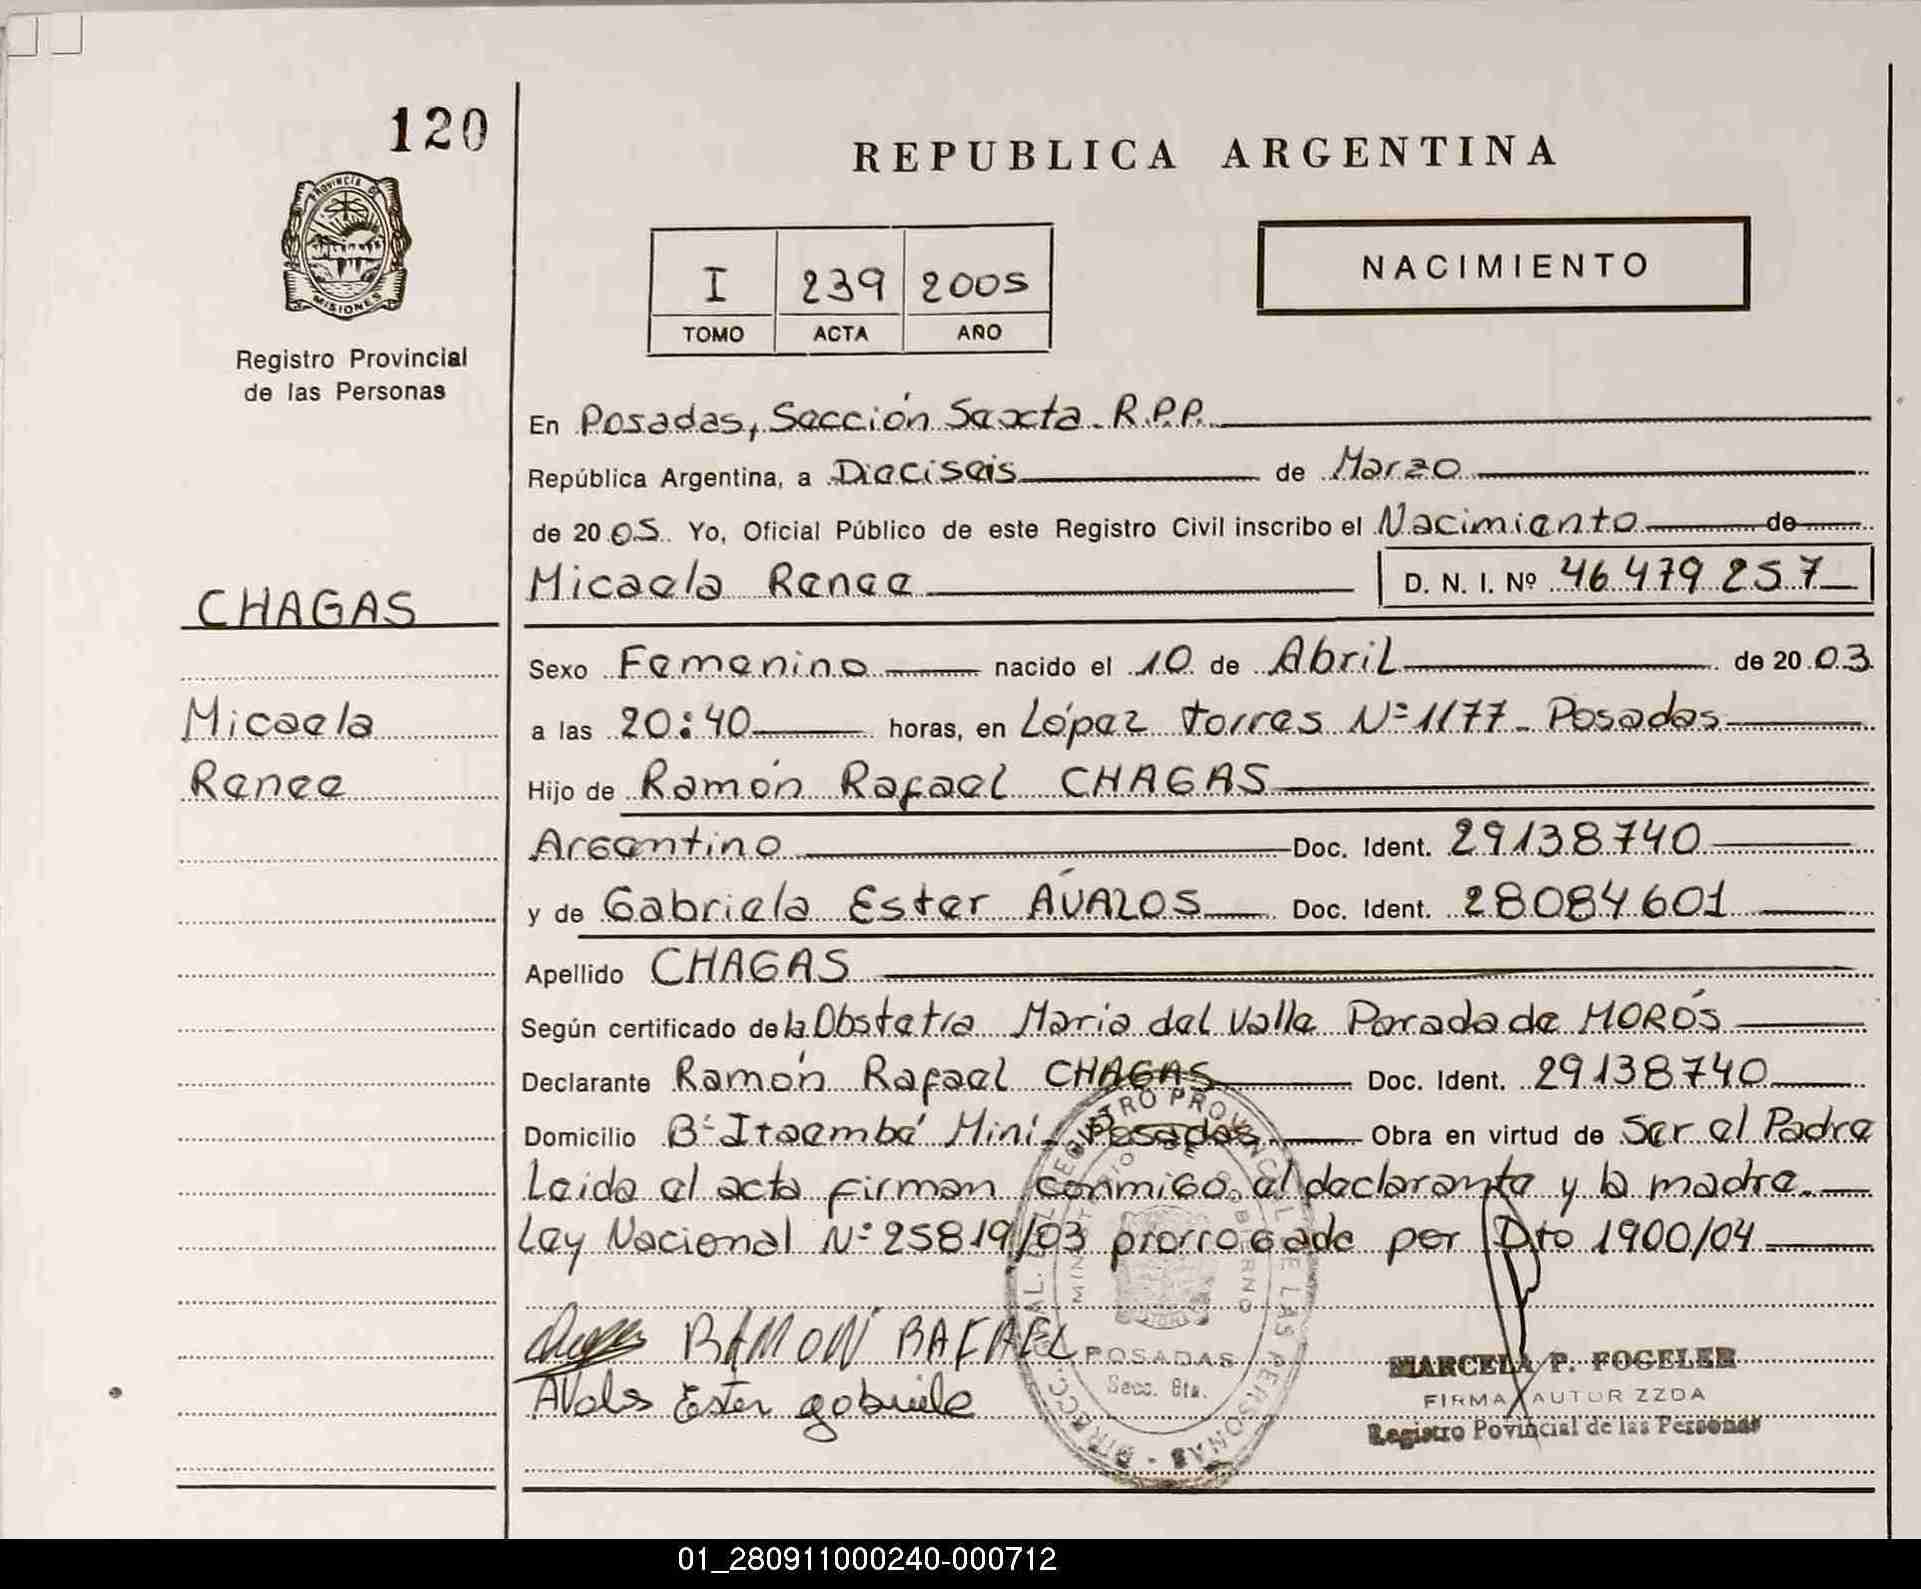 120
REPUBLICA ARGENTINA
PROVINCIA DE
MISIONES
Registro Provincial
de las Personas
I 239 2005
TOMO ACTA AÑO
NACIMIENTO
En Posadas, Sección Sexta. R.P.P.
República Argentina, a Dieciseis de Marzo
de 2005. Yo, Oficial Público de este Registro Civil inscribo el Nacimiento de
Micaela Renee D. N. I. Nº 46.479.257
CHAGAS
Sexo Femenino nacido el 10 de Abril de 2003
Micaela
a las 20:40 horas, en López Torres Nº 1177 - Posadas
Renee
Hijo de Ramón Rafael CHAGAS
Argentino Doc. Ident. 29138740
y de Gabriela Ester ÁVALOS Doc. Ident. 28084601
Apellido CHAGAS
Según certificado de la Obstetra Maria del Valle Parada de MORÓS
Declarante Ramón Rafael CHAGAS Doc. Ident. 29138740
Domicilio Bº Itaembé Miní - Posadas Obra en virtud de Ser el Padre
Leida el acta firman conmigo, el declarante y la madre.
Ley Nacional Nº 25819/03 prorrogado por Dto 1900/04
RAMON RAFAEL
Avals Ester gabriela
DIRECC. GRAL. DEL REGISTRO PROVINCIAL DE LAS PERSONAS
MINISTERIO DE GOBIERNO
POSADAS
Secc. 6ta.
MARCELA P. FOGELER
FIRMA AUTORIZZDA
Registro Povincial de las Personas
01_280911000240-000712